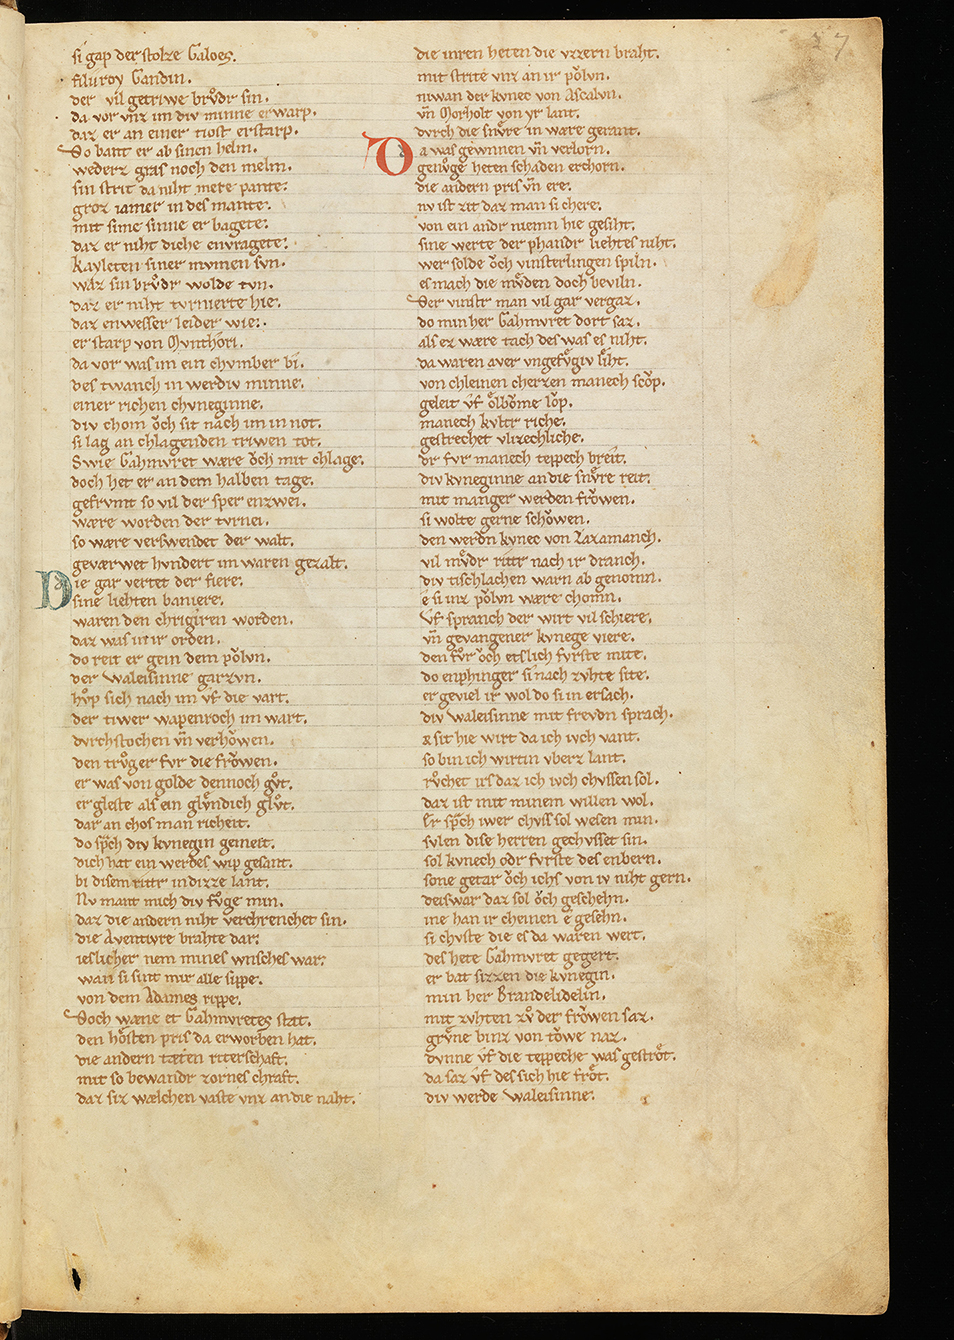 si gap der stolze Galoes.
filuroy Gandin.
der vil getriwe brůdr sin.
da vor vnz im div minne erwarp.
daz er an einer tiost erstarp.
So bant er ab sinen helm.
wederz gras noch den melm.
sin strit da niht mere pante.
groz iamer in des mante.
mit sime sinne er bagete.
daz er niht diche envragete.
kayleten siner mvmen svn.
waz sin brůdr wolde tvn.
daz er niht tvrnierte hie.
daz enwesser leider wie.
er starp von Mvnthori.
da vor was im ein chvmber bi.
des twanch in werdiv minne.
einer richen chvneginne.
div chom ŏch sit nach im in not.
si lag an chlagenden triwen tot.
Swie Gahmvret wære ŏch mit chlage.
doch het er an dem halben tage.
gefrvmt so vil der sper enzwei.
wære worden der tvrnei.
so wære verswendet der walt.
geværwet hvndert im waren gezalt.
Die gar vertet der fiere.
sine liehten baniere.
waren den chrigiren worden.
daz was in ir orden.
do reit er gein dem pŏlvn.
der Waleisinne garzvn.
hůp sich nach im vf die vart.
der tiwer wapenroch im wart.
dvrchstochen vn̄ verhŏwen.
den trůger fvr die frŏwen.
er was von golde dennoch gůt.
er gleste als ein glv̂ndich glůt.
dar an chos man richeit.
do sp̄ch div kvnegin gemeit.
dich hat ein werdes wip gesant.
bi disem rittr in dizze lant.
Nv mant mich div fůge min.
daz die andern niht verchrenchet sin.
die Aventivre brahte dar.
ieslicher nem mines wnsches war.
wan si sint mir alle sippe.
von dem Adames rippe.
Doch wæne et Gahmvretes stat.
den hôsten pris da erworben hat.
die andern tæten riterschaft.
mit so bewandr zornes chraft.
daz siz wælchen vaste vnz an die naht.
die inren heten die vzzern braht.
mit strite vnz an ir pŏlvn.
niwan der kvnec von Ascalvn.
vn̄ Morholt von yr lant.
dvrch die snv̂re in wære gerant.
Da was gewnnen vn̄ verlorn.
genůge heten schaden erchorn.
die andern pris vn̄ ere.
nv ist zit daz man si chere.
von ein andr niemn hie gesiht.
sine werte der phandr liehtes niht.
wer solde ŏch vinsterlingen spiln.
es mach die mv̂den doch beviln.
Der vinstr man vil gar vergaz.
do min her Gahmvret dort saz.
als ez wære tach des was es niht.
da waren aver vngefv̂giv liht.
von chleinen cherzen manech scŏp.
geleit vf ôlbŏme lŏp.
manech kvltr riche.
gestrechet vlizechliche.
dr fvr manech teppech breit.
div kvneginne an die snv̂re reit.
mit manger werden frŏwen.
si wolte gerne schŏwen.
den werdn kvnec von Zazamanch.
vil mv̂dr rittr nach ir dranch.
div tischlachen warn ab genomn.
e si inz pŏlvn wære chomn.
Vf spranch der wirt vil schiere.
vn̄ gevangener kvnege viere.
den fůr ŏch etslich fvrste mite.
do enphinger si nach zvhte site.
er geviel ir wol do si in ersach.
div Waleisinne mit frevdn sprach.
æ sit hie wirt da ich ivch vant.
so bin ich wirtin vberz lant.
růchet irs daz ich ivch chvssen sol.
daz ist mit minem willen wol.
Er sp̄ch iwer chvss sol wesen min.
svlen dise herren gechvsset sin.
sol kvnech odr fvrste des enbern.
sone getar ŏch ichs von iv niht gern.
deiswar daz sol ŏch geschehn.
ine han ir cheinen e gesehn.
si chvste die es da waren wert.
des hete Gahmvret gegert.
er bat sizzen die kvnegin.
min her Brandelidelin.
mit zvhten zů der frŏwen saz.
grv̂ne binz von tŏwe naz.
dvnne vf die teppeche was gestrôt.
da saz vf des sich hie frôt.
div werde Waleisinne.